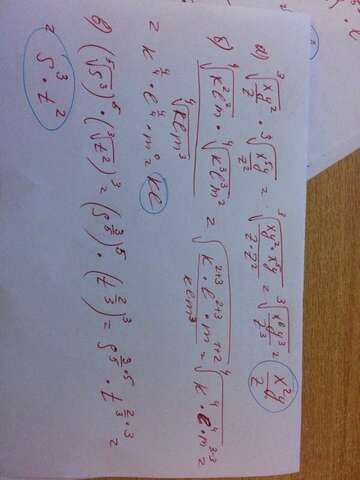 а) ∛(xy²/z) · ∛(x⁵y/z²) = ∛(xy²·x⁵y/z·z²) = ∛(x⁶y³/z³) = x²y/z
б) ∜(k²l²m) · ∜(k³l³m²) / ∜(klm³) = √(k²⁺³·l²⁺³·m¹⁺²/klm³) = ∜(k⁴·l⁴·m³⁻³) =
= k^(4/4) · l^(4/4) · m⁰ = kl
в) (⁵√s³)⁵ · (³√t²)³ = (s^(3/5))⁵ · (t^(2/3))³ = s^(3/5·5) · t^(2/3·3) =
= s³ · t²